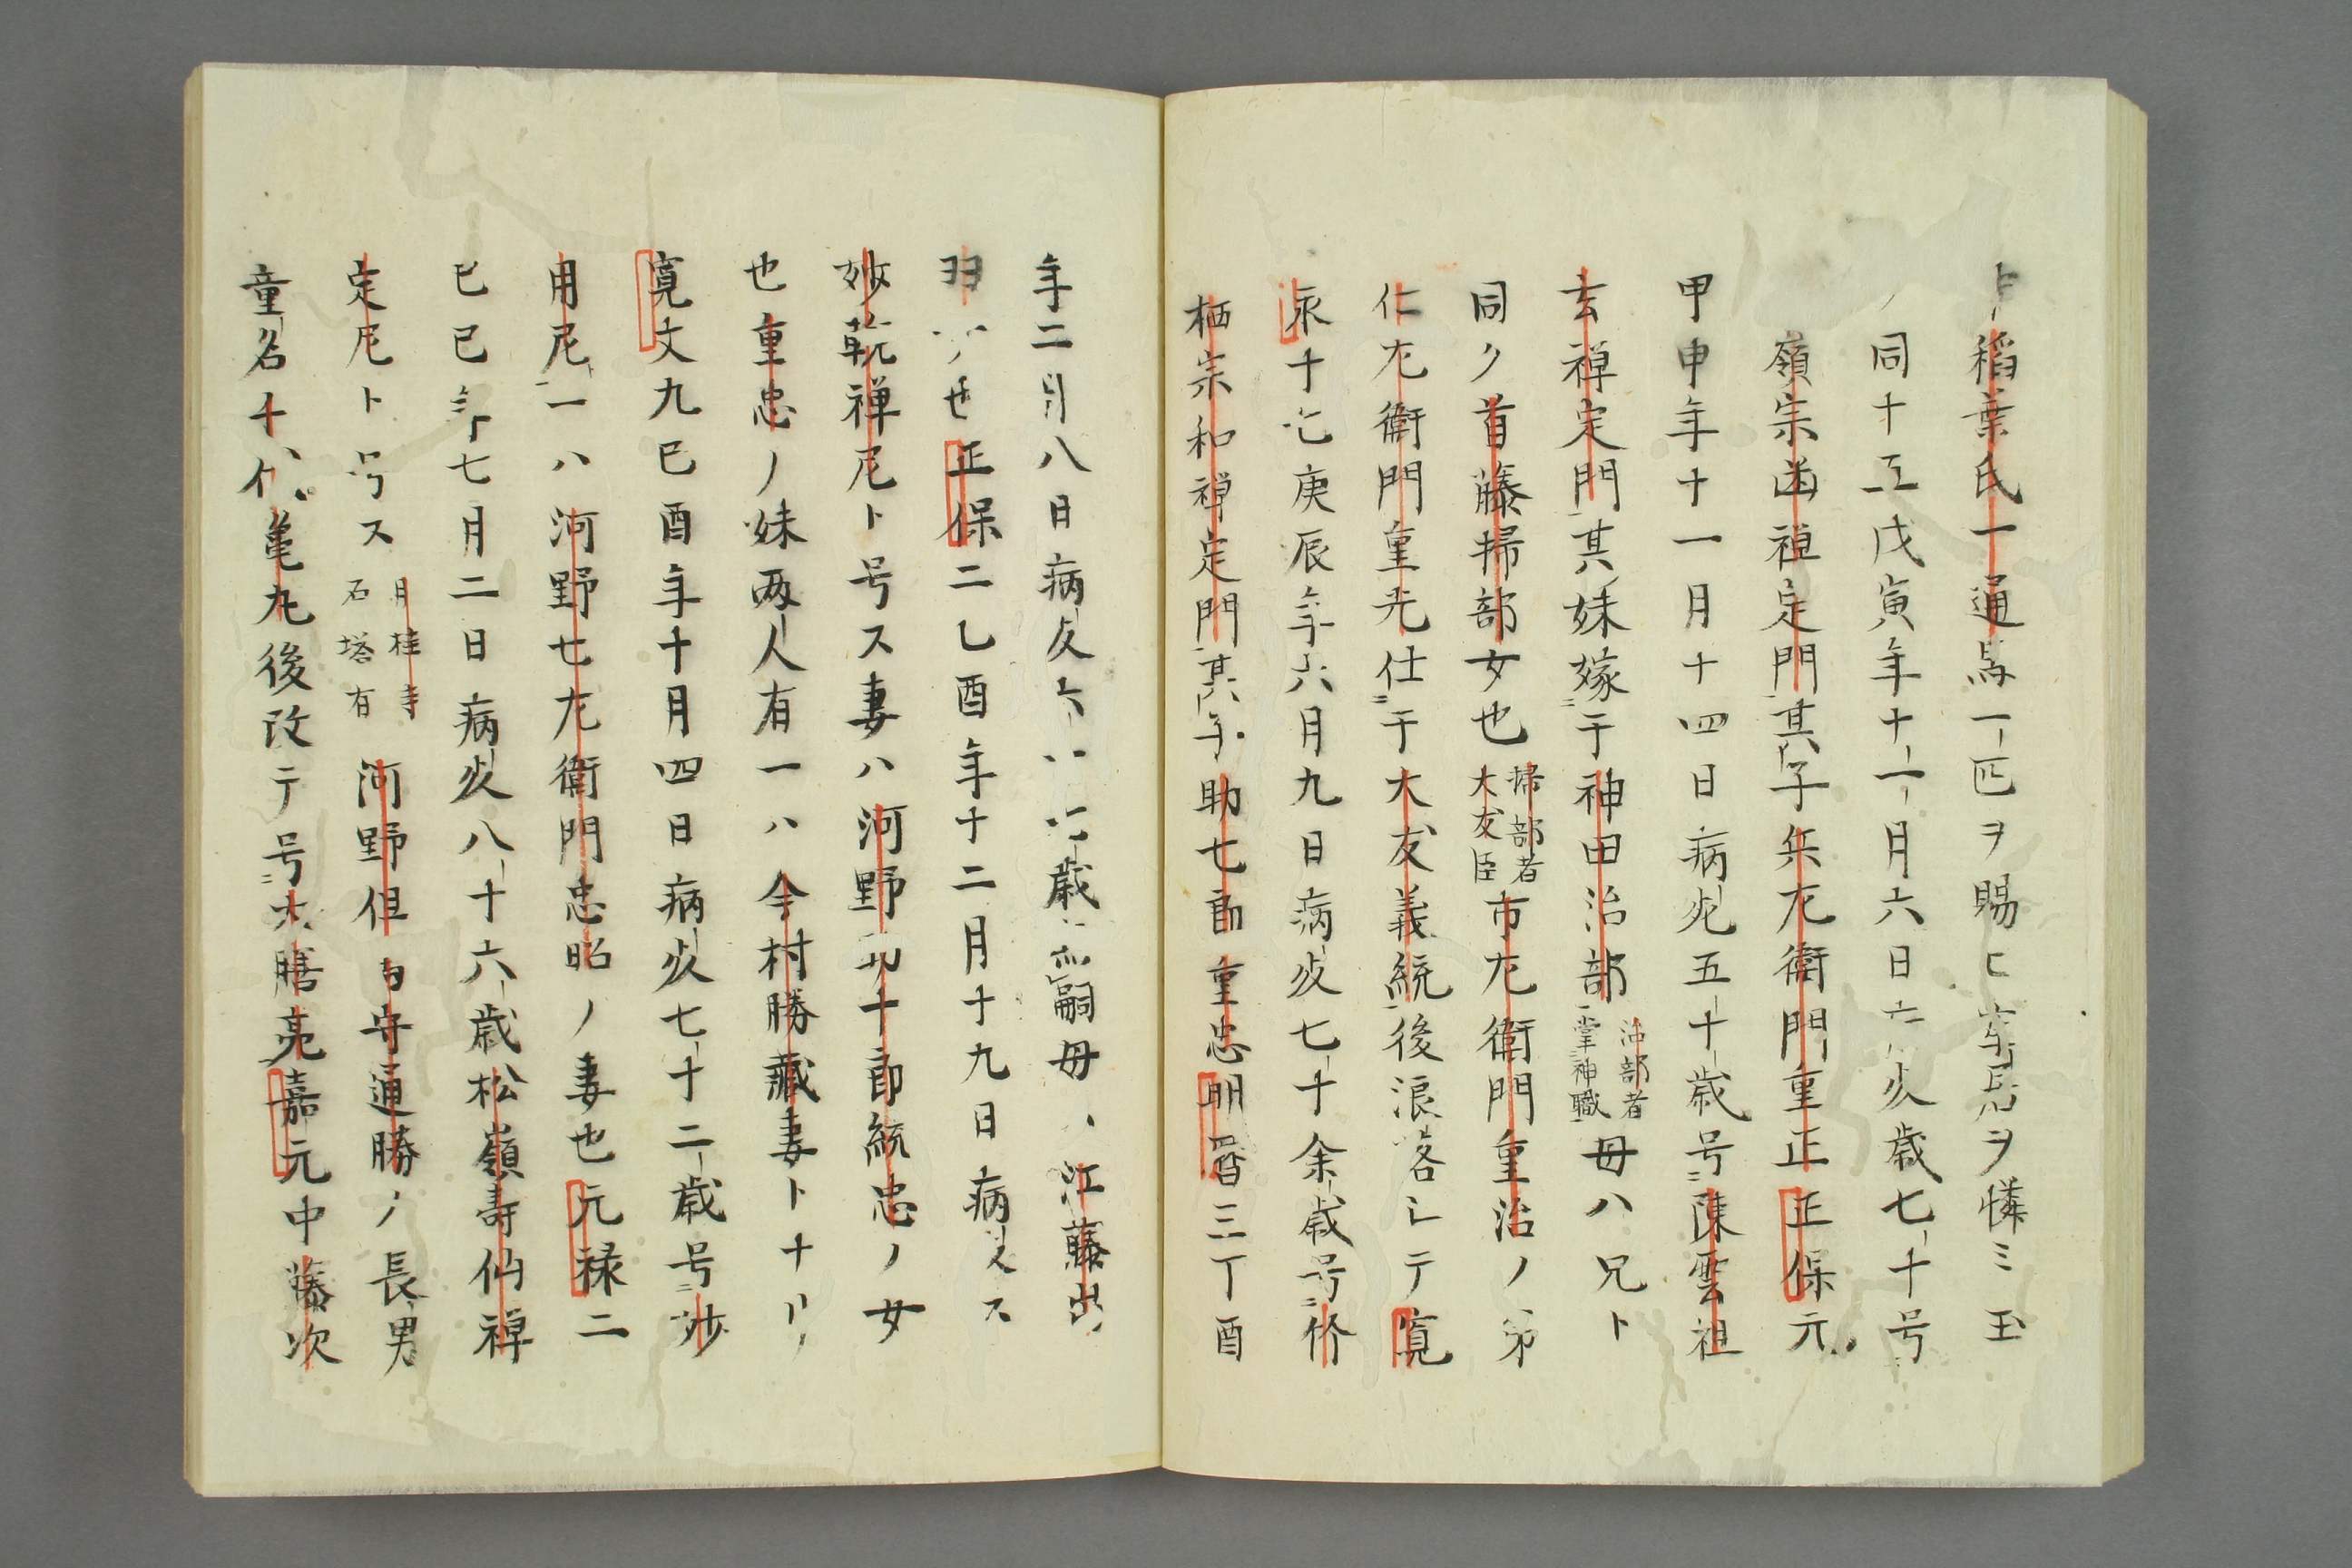 稲葉氏一通馬一匹ヲ賜ヒヲ憐ミ玉
同十五戊寅年十一月六日歳七十号
嶺宗凾禅定門其子兵九衛門重正正保元
甲申年十一月十四日病死五十歳号陳雲祖
玄禅定門其妹嫁于神田治部治部者掌神職母ハ兄ト
同ク首藤掃部女也掃部者大友臣市九衛門重治ノ弟
仁九衛門重光仕于大友義統後浪落シテ寛
永十七庚辰年六月九日病死七十余歳号
栖宗和禅定門其子助七郎重忠明暦三丁酉
年二月八日病死六歳嗣母江藤
也正保二乙酉年十二月十九日病
妙乾禅尼ト号ス妻ハ河野十郎統忠ノ女
也重忠ノ妹両人有一ハ今村勝藏妻トナリ
寛文九己酉年十月四日病死七十二歳号妙
用尼一ハ河野七九衛門忠昭ノ妻也元禄二
己巳年七月二日病死八十六歳松嶺寿仙禅
定尼ト号ス月桂寺石塔有河野但守通勝ノ長男
童名千代亀丸後改テ号大膳亮嘉元中藤次